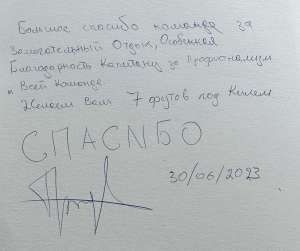 Большое спасибо команде за
Замечательный Отдых, Особенная
Благодарность Капитану за Профессионализм
и Всей Команде.
Желаем Вам 7 футов под Килем
СПАСИБО
30/06/2023